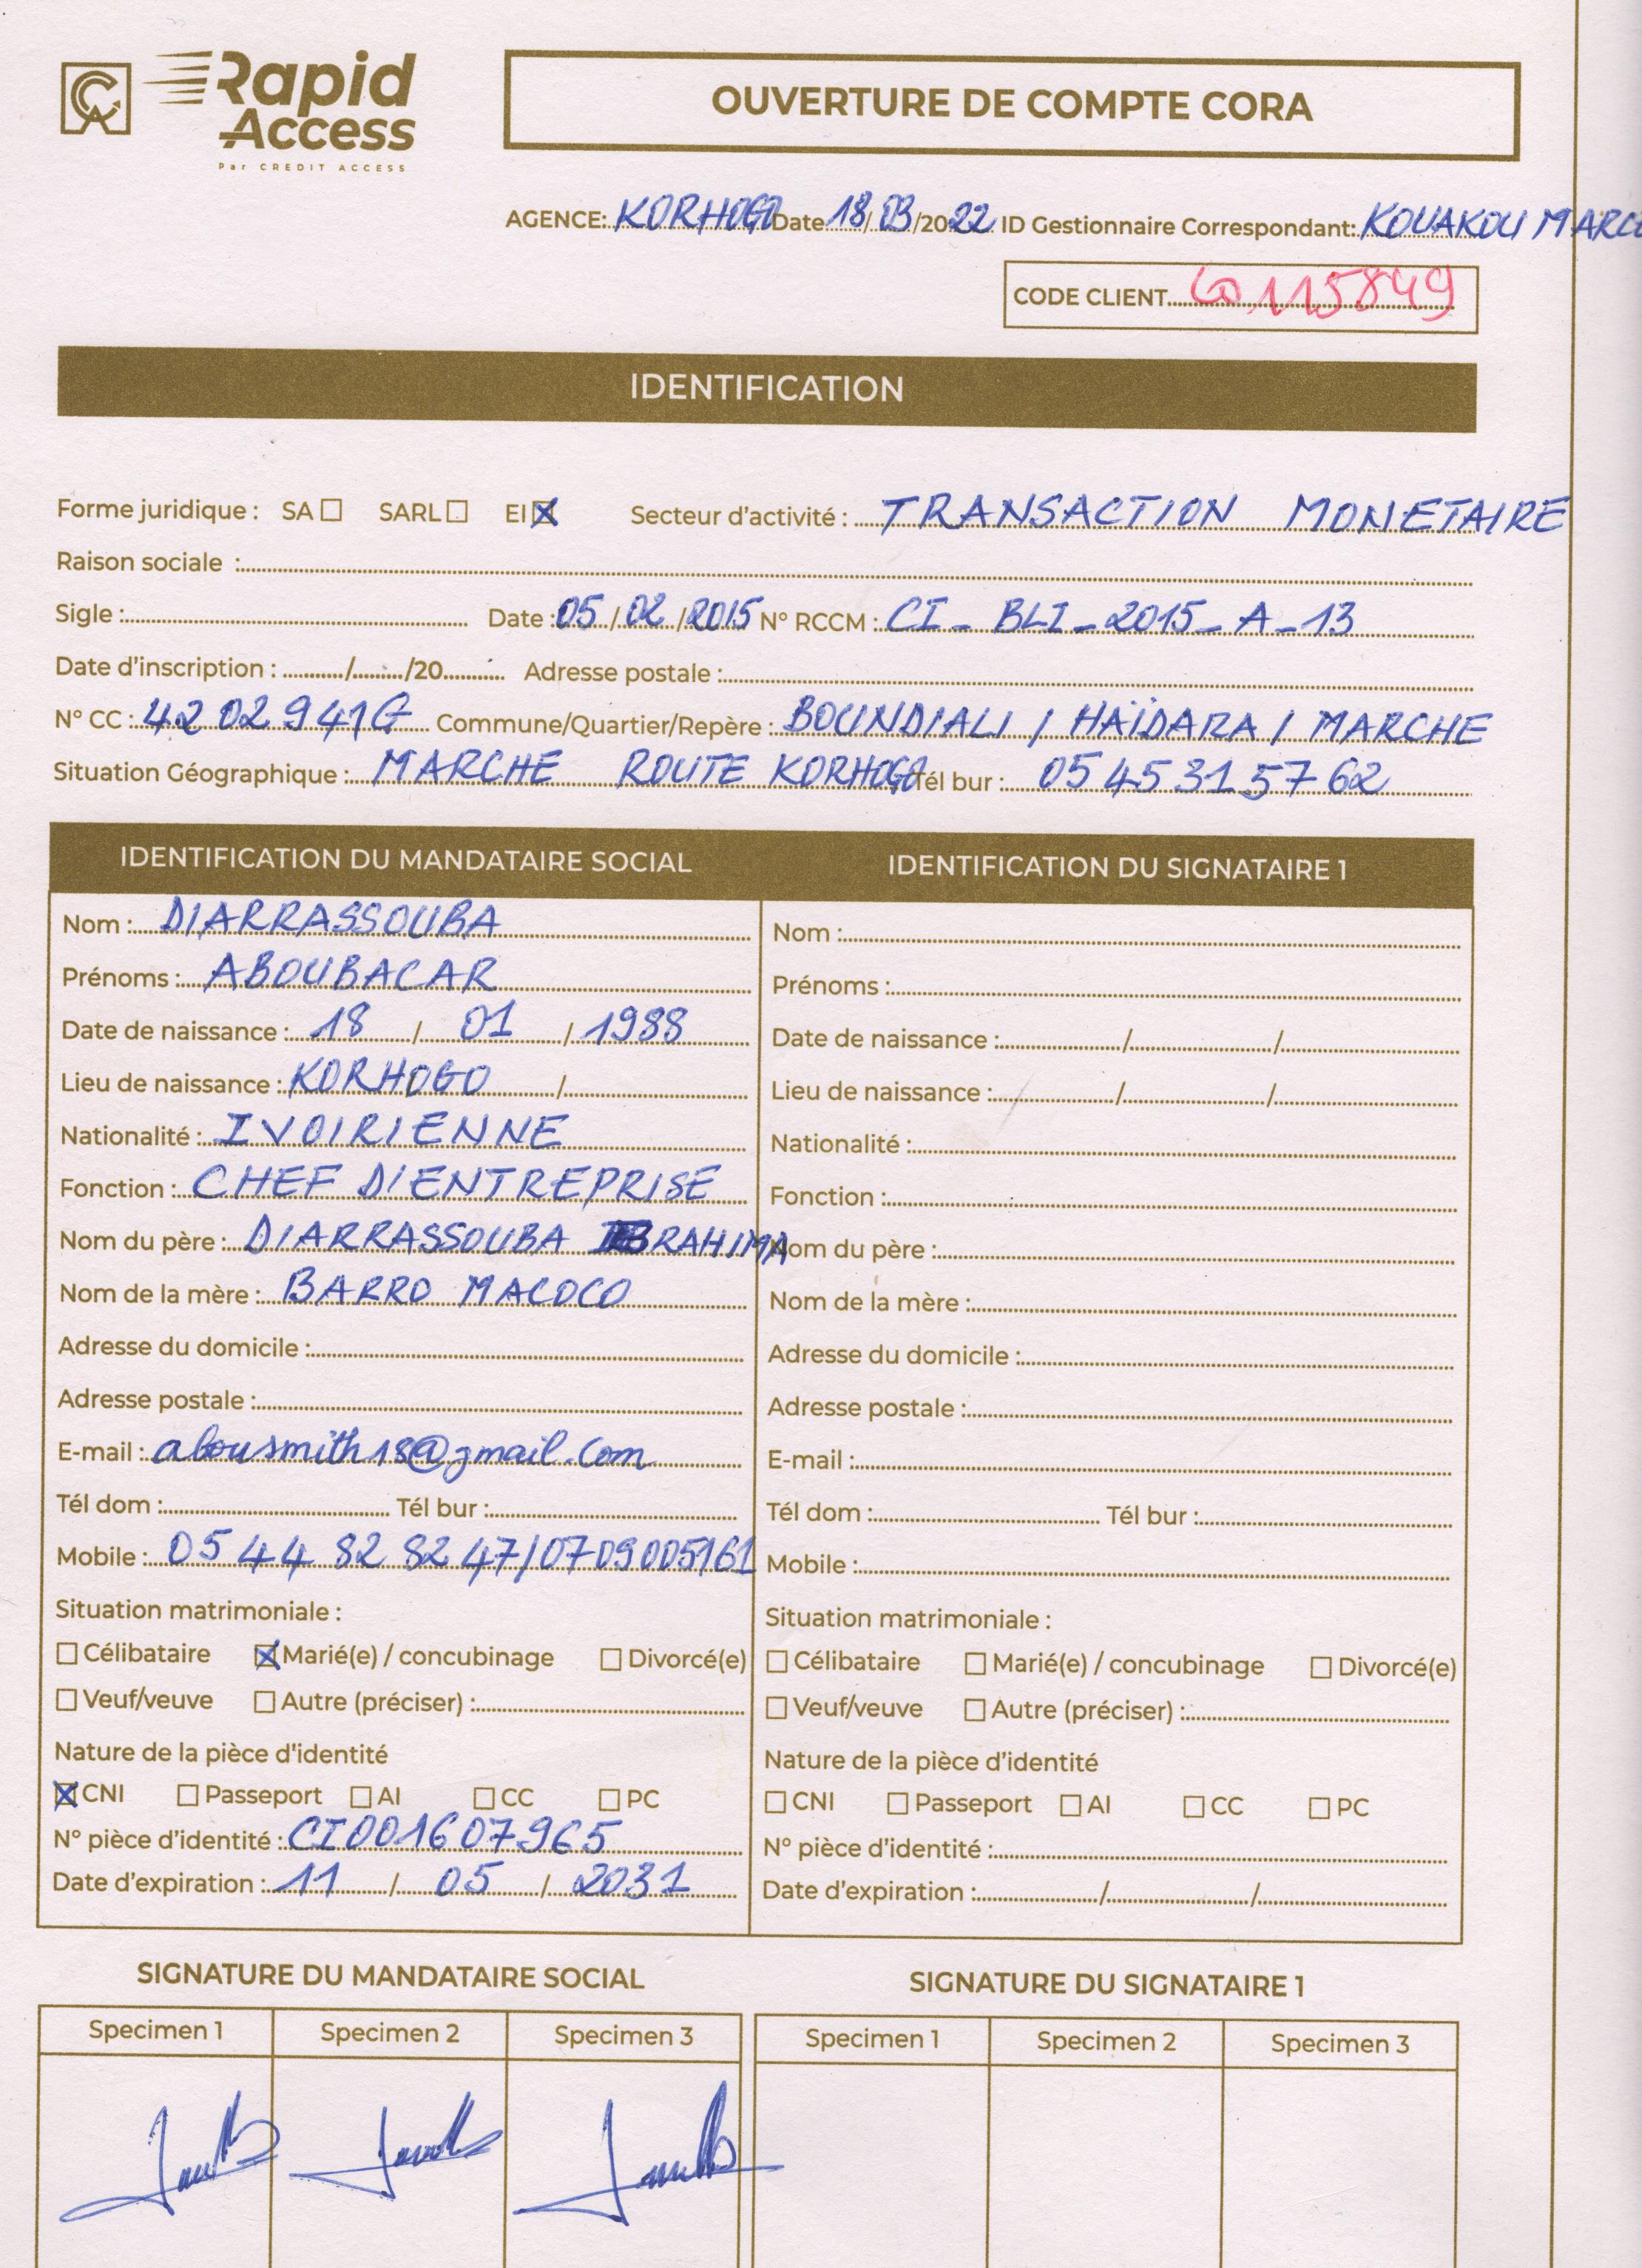 Rapid
Access
Par CREDIT ACCESS
OUVERTURE DE COMPTE CORA
AGENCE: KORHOGO Date 18/03/2022 ID Gestionnaire Correspondant: KOUAKOU
CODE CLIENT 115849
IDENTIFICATION
Forme juridique : SA ☐ SARL ☐ EI ☒ Secteur d'activité : TRANSACTION MONETAIRE
Raison sociale :
Sigle : Date : 05/02/2015 N° RCCM : CI_BLI_2015_A_13
Date d'inscription : ......../......../20........ Adresse postale :
N° CC : 4202941G Commune/Quartier/Repère : BOUNDIALI / HAÏDARA / MARCHE
Situation Géographique : MARCHE ROUTE KORHOGO Tél bur : 05 45 31 57 62
IDENTIFICATION DU MANDATAIRE SOCIAL
Nom : DIARRASSOUBA
Prénoms : ABOUBACAR
Date de naissance : 18 / 01 / 1988
Lieu de naissance : KORHOGO /
Nationalité : IVOIRIENNE
Fonction : CHEF D'ENTREPRISE
Nom du père : DIARRASSOUBA IBRAHIMA
Nom de la mère : BARRO MACOCO
Adresse du domicile :
Adresse postale :
E-mail : abousmith18@gmail.com
Tél dom : Tél bur :
Mobile : 05 44 82 82 47/0709005161
Situation matrimoniale :
☐ Célibataire ☒ Marié(e) / concubinage ☐ Divorcé(e)
☐ Veuf/veuve ☐ Autre (préciser) :
Nature de la pièce d'identité
☒ CNI ☐ Passeport ☐ AI ☐ CC ☐ PC
N° pièce d'identité : CI001607965
Date d'expiration : 11 / 05 / 2031
IDENTIFICATION DU SIGNATAIRE 1
Nom :
Prénoms :
Date de naissance : / /
Lieu de naissance : / /
Nationalité :
Fonction :
Nom du père :
Nom de la mère :
Adresse du domicile :
Adresse postale :
E-mail :
Tél dom : Tél bur :
Mobile :
Situation matrimoniale :
☐ Célibataire ☐ Marié(e) / concubinage ☐ Divorcé(e)
☐ Veuf/veuve ☐ Autre (préciser) :
Nature de la pièce d'identité
☐ CNI ☐ Passeport ☐ AI ☐ CC ☐ PC
N° pièce d'identité :
Date d'expiration : / /
SIGNATURE DU MANDATAIRE SOCIAL
Specimen 1 Specimen 2 Specimen 3
SIGNATURE DU SIGNATAIRE 1
Specimen 1 Specimen 2 Specimen 3